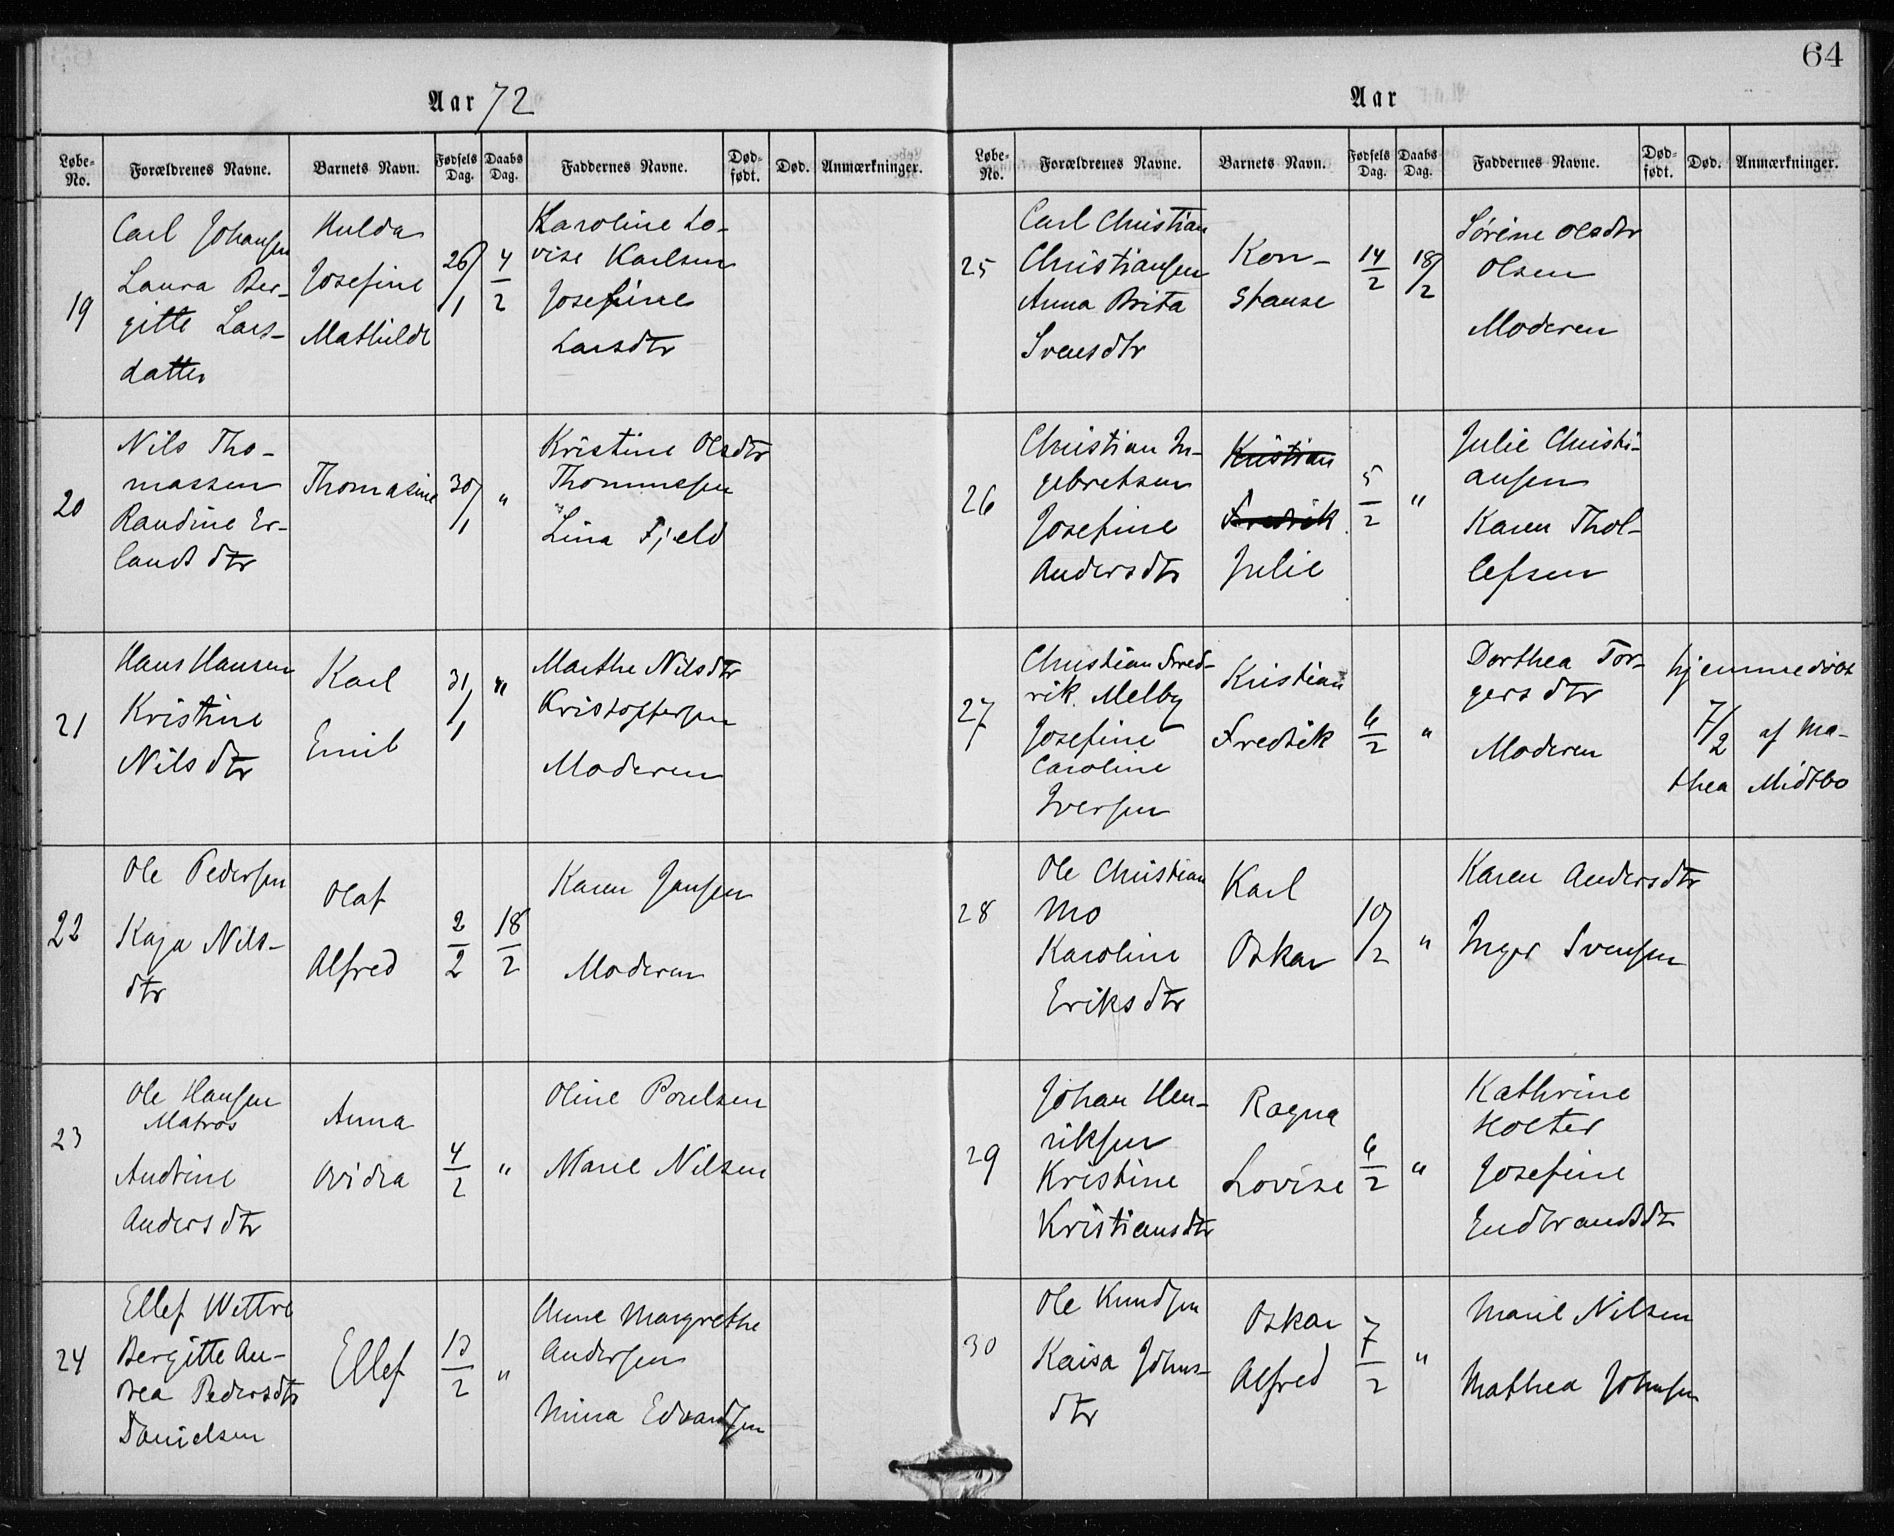 64
Aar 72
Løbe-No. Forældrenes Navne. Barnets Navn. Fødsels Dag. Daabs Dag. Faddernes Navne. Død-født. Død. Anmærkninger.
19
Carl Johansen
Laura Ber-
gitte Lars-
datter
Hulda
Josefine
Mathilde
26/1
4/2
Karoline Lo-
vise Karlsen
Josefine
Larsdtr
20
Nils Tho-
massen
Randine Er-
lands dtr
Thomasine
30/1
"
Kristine Olsdtr
Thommesen
Lina Fjeld
21
Hans Hansen
Kristine
Nilsdtr
Karl
Emil
31/1
"
Marthe Nilsdtr
Kristoffersen
Moderen
22
Ole Pedersen
Kaja Nils-
dtr
Olaf
Alfred
2/2
18/2
Karen Jansen
Moderen
23
Ole Hansen
Matros
Andrine
Andersdtr
Anna
Ovidia
4/2
"
Oline Poulsen
Marie Nilsen
24
Ellef Wettre
Bergitte An-
drea Pedersdtr
Danielsen
Ellef
13/2
"
Anne Margrethe
Andersen
Mina Edvardsen
Aar
Løbe-No. Forældrenes Navne. Barnets Navn. Fødsels Dag. Daabs Dag. Faddernes Navne. Død-født. Død. Anmærkninger.
25
Carl Christian
Christiansen
Anna Brita
Svensdtr
Kon-
stanse
14/2
18/2
Sørine Olsdtr
Olsen
Moderen
26
Christian In-
gebretsen
Josefine
Andersdtr
Kristian
Fredrik
Julie
5/2
"
Julie Christi-
ansen
Karen Thol-
lefsen
27
Christian Fred-
rik Melby
Josefine
Caroline
Iversen
Kristian
Fredrik
6/2
"
Dorthea Tor-
gersdtr
Moderen
hjemmedøbt
7/2 af Ma-
thea Midtbo
28
Ole Christian
Mo
Karoline
Eriksdtr
Karl
Oskar
10/2
"
Karen Andersdtr
Inger Svensen
29
Johan Hen-
riksen
Kristine
Kristiansdtr
Ragna
Lovise
6/2
"
Kathrine
Holter
Josefine
Endbrandsdtr
30
Ole Knudsen
Kaisa Johns-
dtr
Oskar
Alfred
7/2
"
Marie Nilsen
Mathea Johnsen